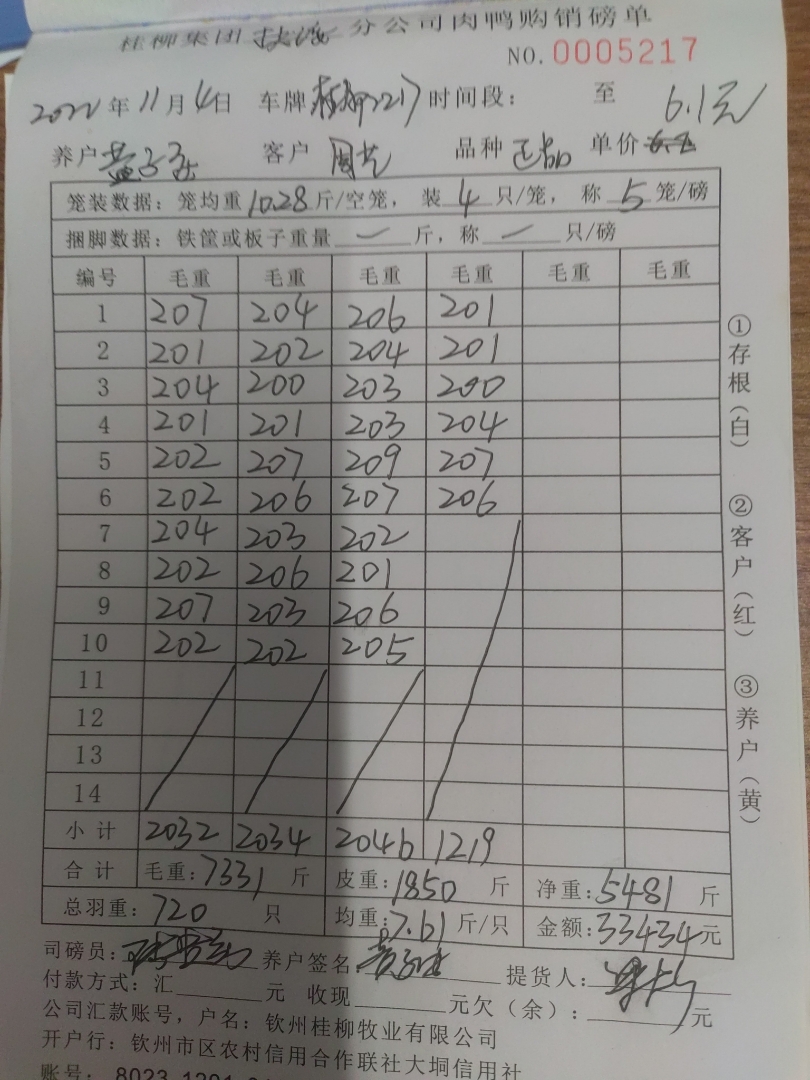 桂柳集团 分公司肉鸭购销磅单
NO. 0005217
2022年11月4日 车牌桂柳2217 时间段： 至 6.1元
养户 客户 周艺 品种 正品 单价
笼装数据：笼均重10.28斤/空笼，装4只/笼，称5笼/磅
捆脚数据：铁筐或板子重量 — 斤，称 — 只/磅
编号 毛重 毛重 毛重 毛重 毛重 毛重
1 207 204 206 201
2 201 202 204 201
3 204 200 203 200
4 201 201 203 204
5 202 207 209 207
6 202 206 207 206
7 204 203 202
8 202 206 201
9 207 203 206
10 202 202 205
11
12
13
14
小计 2032 2034 2046 1219
合计 毛重：7331斤 皮重：1850斤 净重：5481斤
总羽重：720只 均重：7.61斤/只 金额：33434元
司磅员： 养户签名 提货人：
付款方式：汇 元 收现 元欠（余）： 元
公司汇款账号，户名：钦州桂柳牧业有限公司
开户行：钦州市区农村信用合作联社大垌信用社
账号： 8023 1201
①存根（白）
②客户（红）
③养户（黄）